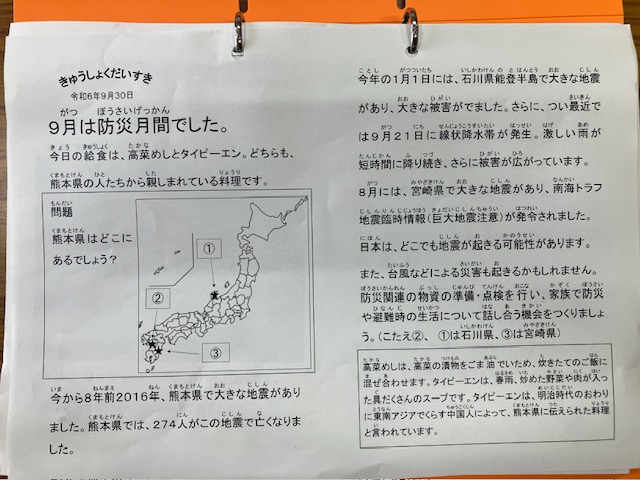 きゅうしょくだいすき
令和6年9月30日
9月は防災月間でした。
今日の給食は、高菜めしとタイピーエン。どちらも、
熊本県の人たちから親しまれている料理です。
問題
熊本県はどこに
あるでしょう?
①
②
③
今から8年前2016年、熊本県で大きな地震があり
ました。熊本県では、274人がこの地震で亡くなりま
した。
今年の1月1日には、石川県能登半島で大きな地震
があり、大きな被害がでました。さらに、つい最近で
は9月21日に線状降水帯が発生。激しい雨が
短時間に降り続き、さらに被害が広がっています。
8月には、宮崎県で大きな地震があり、南海トラフ
地震臨時情報(巨大地震注意)が発令されました。
日本は、どこでも地震が起きる可能性があります。
また、台風などによる災害も起きるかもしれません。
防災関連の物資の準備・点検を行い、家族で防災
や避難時の生活について話し合う機会をつくりましょ
う。(こたえ②、①は石川県、③は宮崎県)
高菜めしは、高菜の漬物をごま油でいため、炊きたてのご飯に
混ぜ合わせます。タイピーエンは、春雨、炒めた野菜や肉が入っ
た具だくさんのスープです。タイピーエンは、明治時代のおわり
に東南アジアでくらす中国人によって、熊本県に伝えられた料理
と言われています。